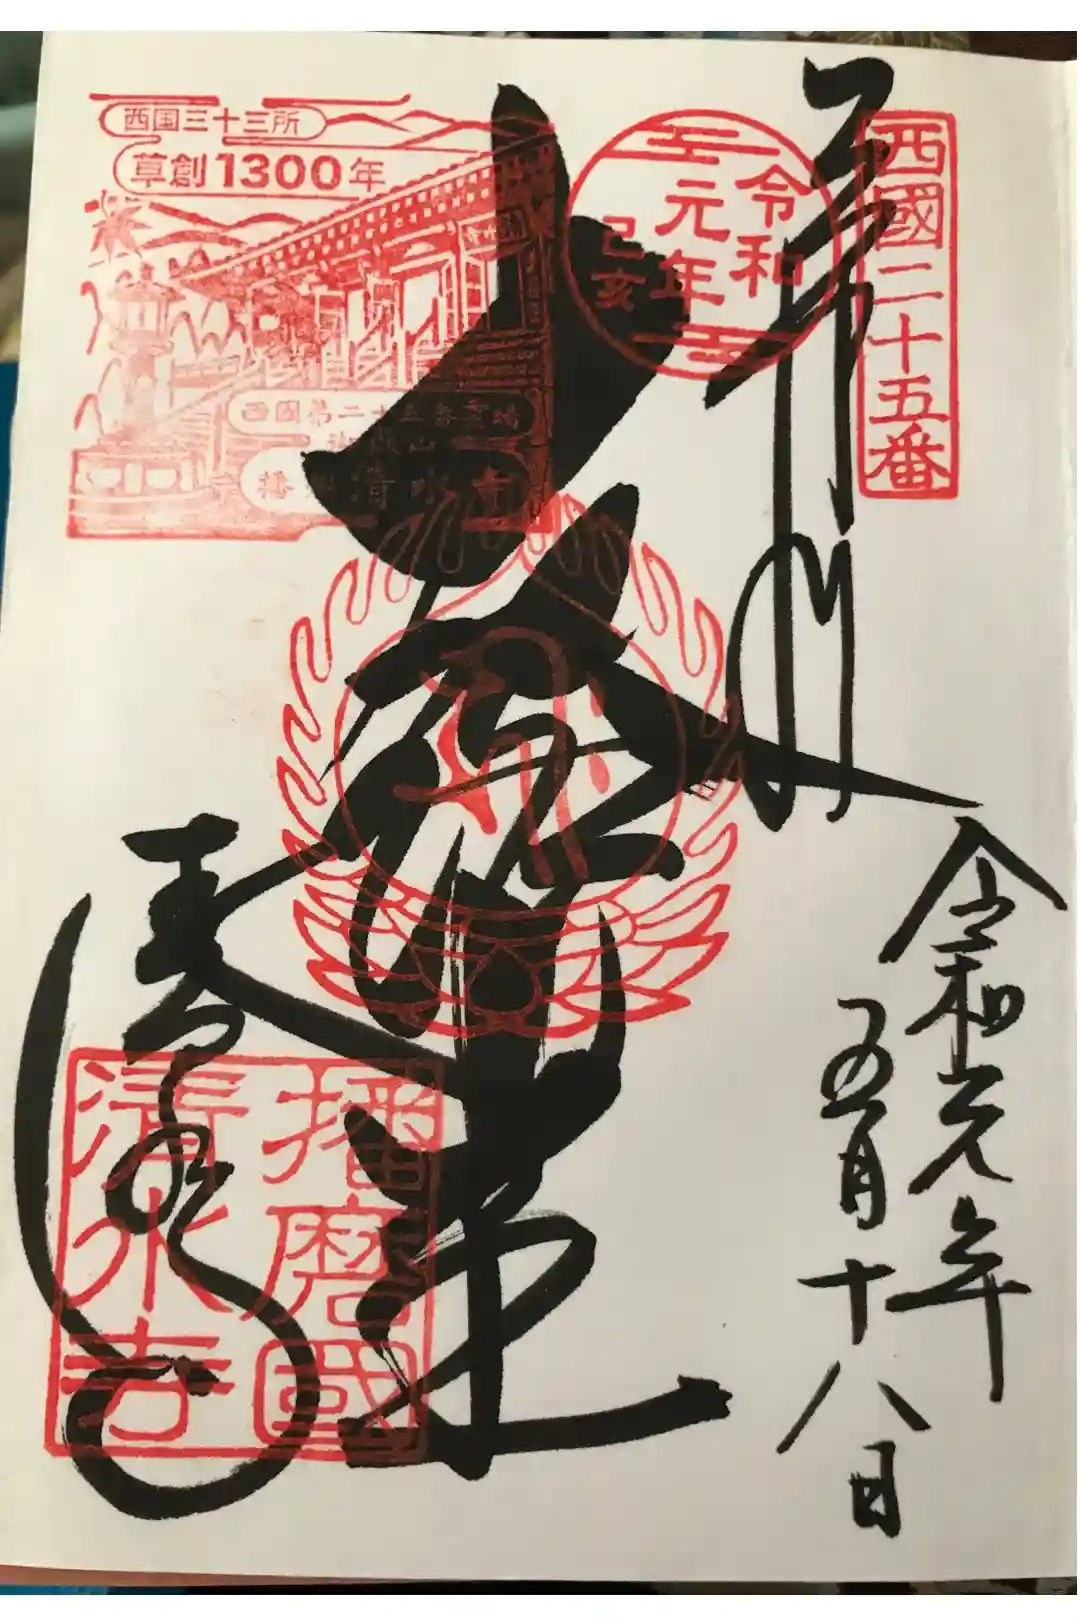 西國二十五番
奉拝
令和元年
五月十八日
令和
元年
己亥
大悲殿
西国三十三所
草創1300年
西國第二十五番霊場
御嶽山
播州清水寺
播磨國
清水寺